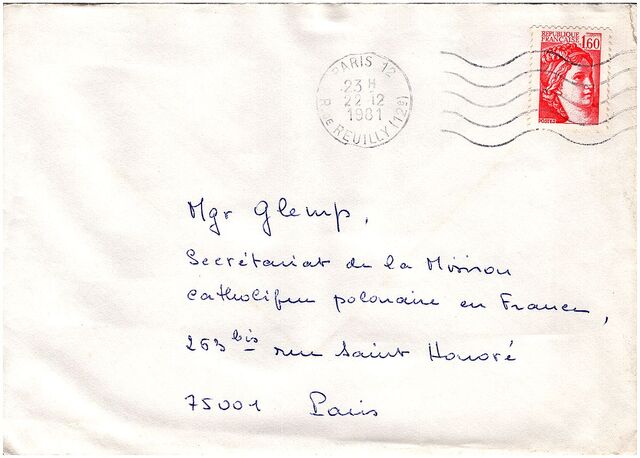 PARIS 12
23 H
22-12
1981
R. E REUILLY (12e)
REPUBLIQUE
FRANÇAISE
1,60
Mgr Glemp,
Secrétariat de la Mission
catholique polonaise en France,
263 bis rue Saint Honoré
75001 Paris